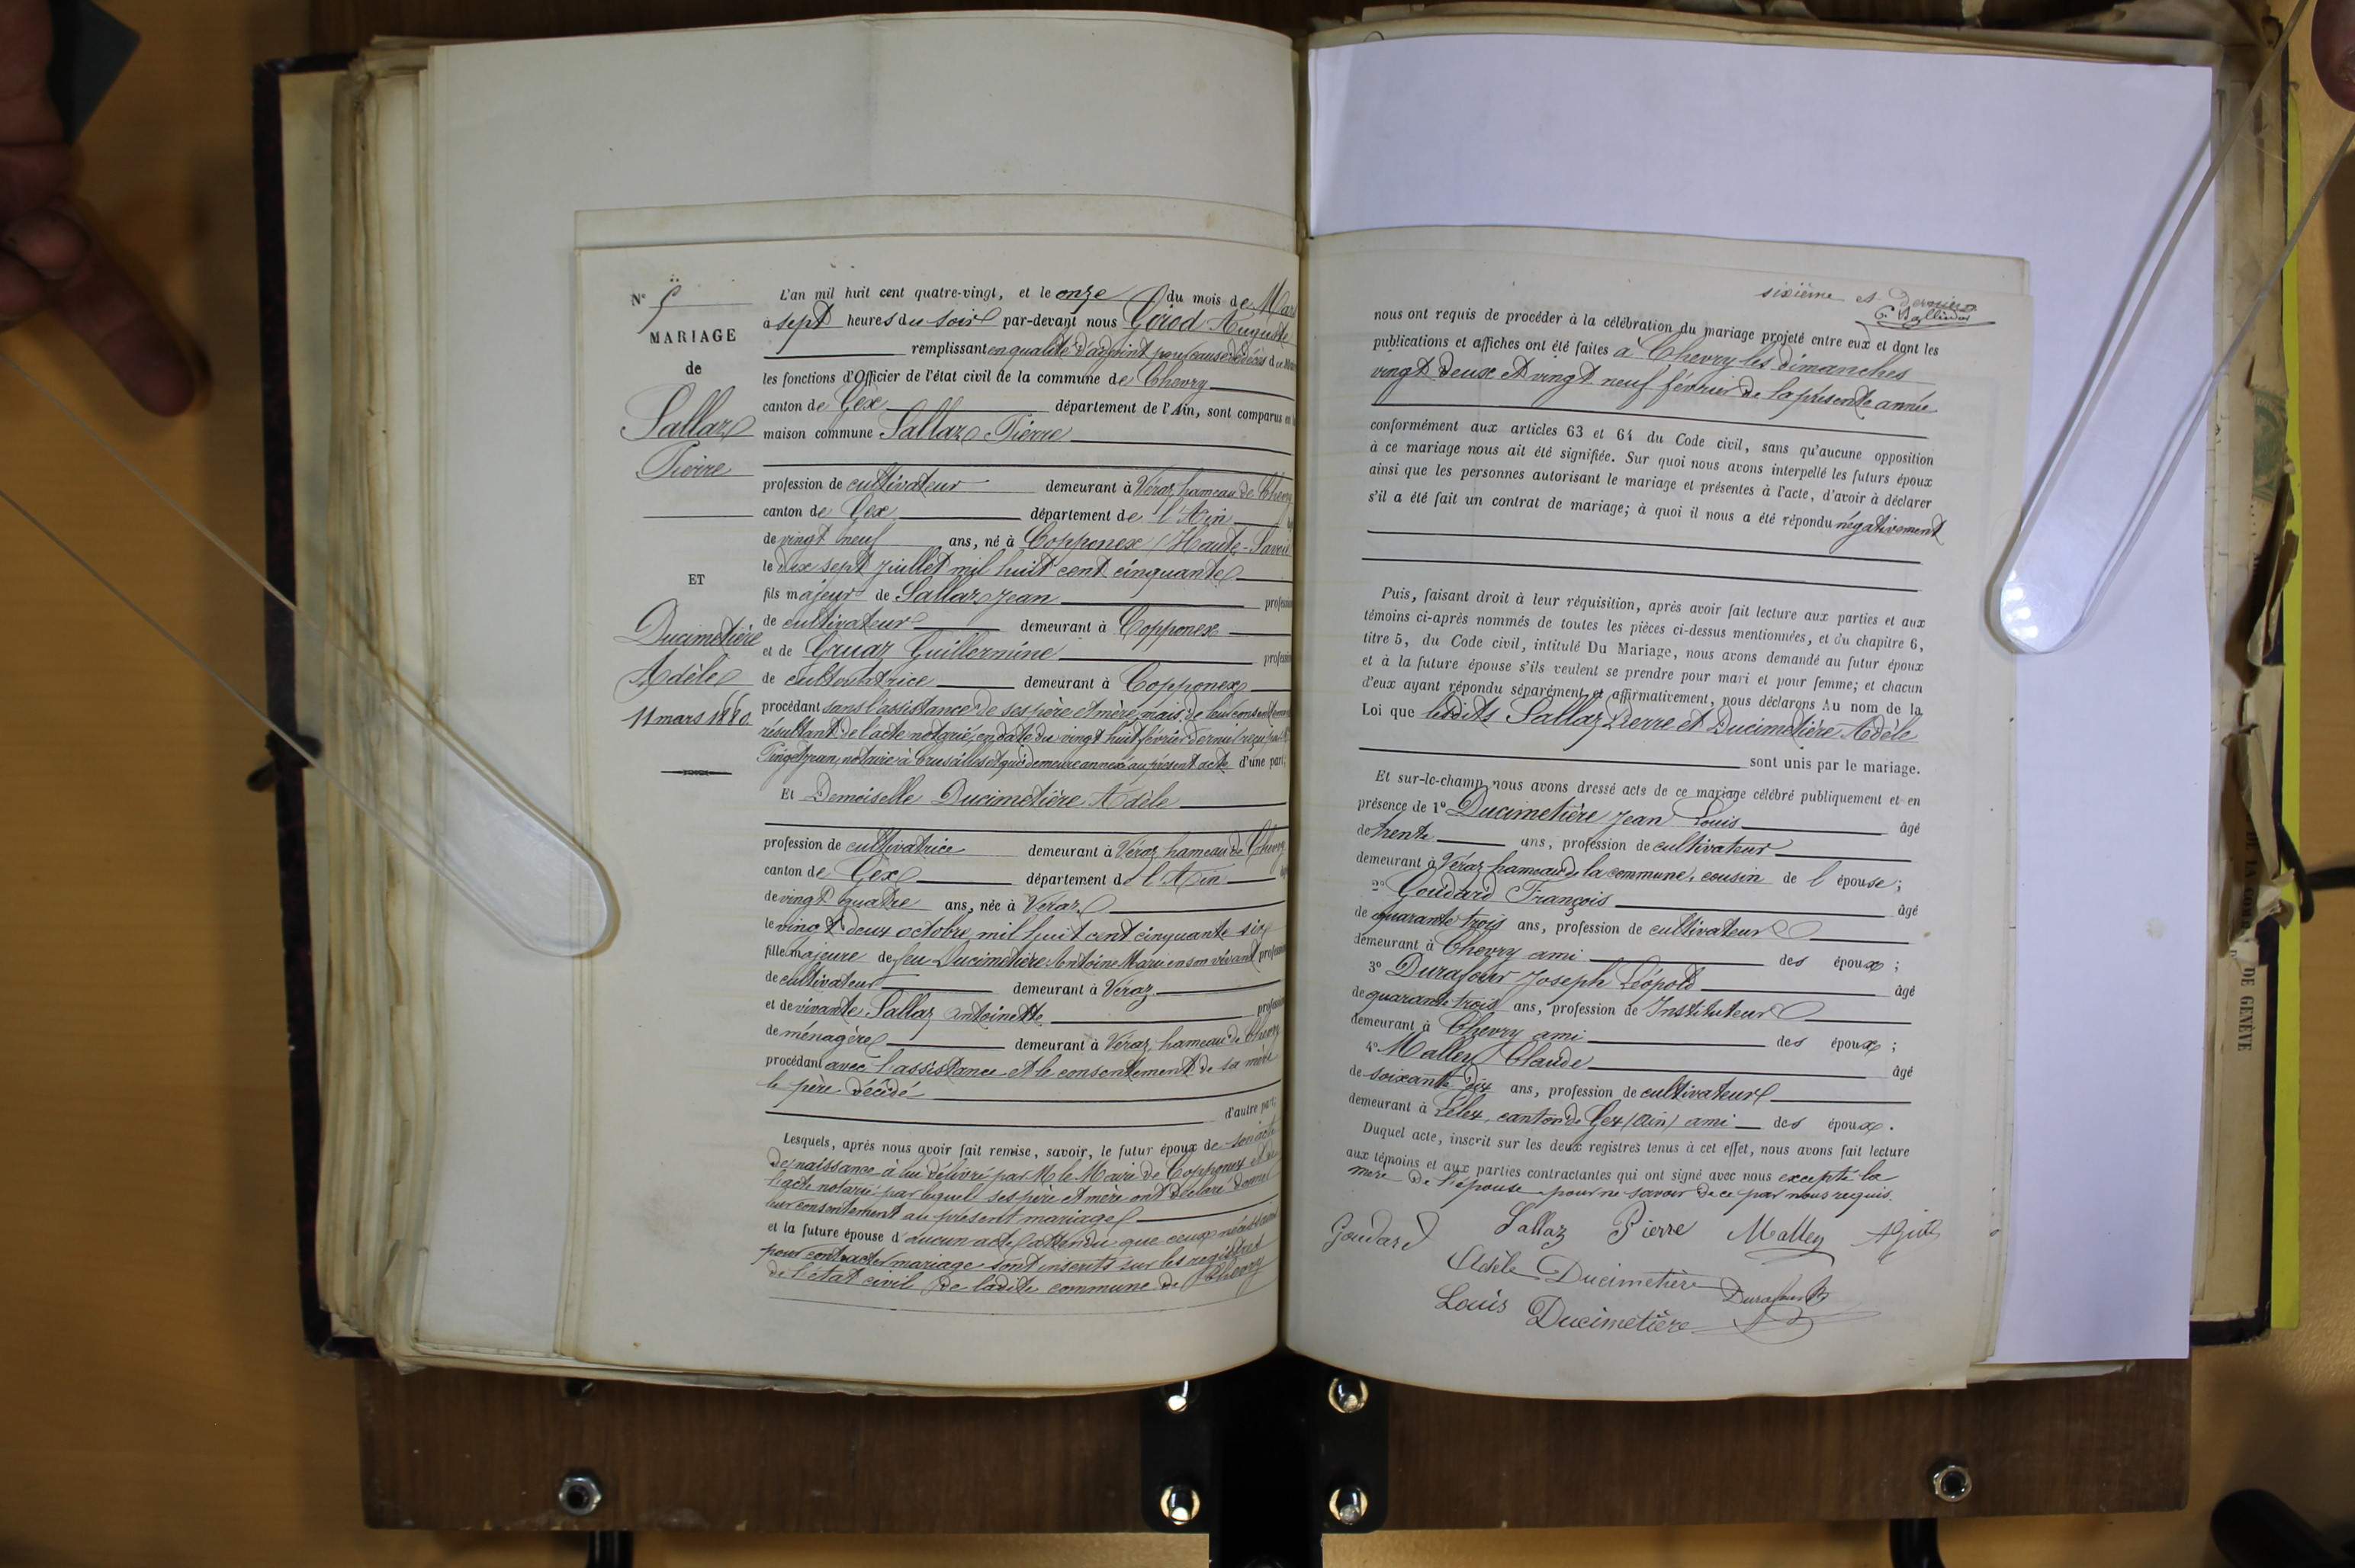 N° 5
MARIAGE
de
Sallaz
Pierre
ET
Ducimetière
Adèle
11 mars 1880.
L'an mil huit cent quatre-vingt, et le onze du mois de Mars
à sept heures du soir par-devant nous Girod Auguste
remplissant en qualité d'adjoint pour cause de décès de M
les fonctions d'Officier de l'état civil de la commune de Chevry
canton de Gex département de l'Ain, sont comparus en
maison commune Sallaz Pierre
profession de cultivateur demeurant à Véraz, hameau de Chevry
canton de Gex département de l'Ain
de vingt neuf ans, né à Copponex (Haute-Savoie
le dix sept juillet mil huit cent cinquante
fils majeur de Sallaz Jean profession
de cultivateur demeurant à Copponex
et de Gruaz Guillermine profession
de cultivatrice demeurant à Copponex
procédant sans l'assistance de ses père et mère, mais de leur consentement
résultant de l'acte notarié, en date du vingt huit février dernier reçu par
Pinget Jean, notaire à Cruseilles et qui demeure annexé au présent acte d'une part;
Et Demoiselle Ducimetière Adèle
profession de cultivatrice demeurant à Véraz, hameau de Chevry
canton de Gex département de l'Ain
de vingt quatre ans, née à Véraz
le vingt deux octobre mil huit cent cinquante six
fille majeure de feu Ducimetière Antoine Marie en son vivant profession
de cultivateur demeurant à Véraz
et de vivante Sallaz Antoinette profession
de ménagère demeurant à Véraz, hameau de Chevry
procédant avec l'assistance et le consentement de sa mère
le père décédé
d'autre part;
Lesquels, après nous avoir fait remise, savoir, le futur époux de son acte
de naissance à lui délivré par M le Maire de Copponex et de
l'acte notarié par lequel ses père et mère ont déclaré donner
leur consentement au présent mariage
et la future épouse d'aucun acte attendu que ceux nécessaires
pour contracter mariage sont inscrits sur les registres
de l'état civil de ladite commune de Chevry
sixième et dernier
nous ont requis de procéder à la célébration du mariage projeté entre eux et dont les
publications et affiches ont été faites à Chevry les dimanches
vingt deux et vingt neuf février de la présente année
conformément aux articles 63 et 64 du Code civil, sans qu'aucune opposition
à ce mariage nous ait été signifiée. Sur quoi nous avons interpellé les futurs époux
ainsi que les personnes autorisant le mariage et présentes à l'acte, d'avoir à déclarer
s'il a été fait un contrat de mariage; à quoi il nous a été répondu négativement
Puis, faisant droit à leur réquisition, après avoir fait lecture aux parties et aux
témoins ci-après nommés de toutes les pièces ci-dessus mentionnées, et du chapitre 6,
titre 5, du Code civil, intitulé Du Mariage, nous avons demandé au futur époux
et à la future épouse s'ils veulent se prendre pour mari et pour femme; et chacun
d'eux ayant répondu séparément et affirmativement, nous déclarons Au nom de la
Loi que lesdits Sallaz Pierre et Ducimetière Adèle
sont unis par le mariage.
Et sur-le-champ, nous avons dressé acte de ce mariage célébré publiquement et en
présence de 1° Ducimetière Jean Louis âgé
de trente ans, profession de cultivateur
demeurant à Véraz hameau de la commune, cousin de l'épouse;
2° Goudard François âgé
de quarante trois ans, profession de cultivateur
demeurant à Chevry ami des époux;
3° Durafour Joseph Léopold âgé
de quarante trois ans, profession de Instituteur
demeurant à Chevry ami des époux;
4° Malley Claude âgé
de soixante dix ans, profession de cultivateur
demeurant à Lélex, canton de Gex (Ain) ami des époux.
Duquel acte, inscrit sur les deux registres tenus à cet effet, nous avons fait lecture
aux témoins et aux parties contractantes qui ont signé avec nous excepté la
mère de l'épouse pour ne savoir de ce par nous requis.
Goudard Sallaz Pierre Malley
Adèle Ducimetière Durafour
Louis Ducimetière
DE GENÈVE